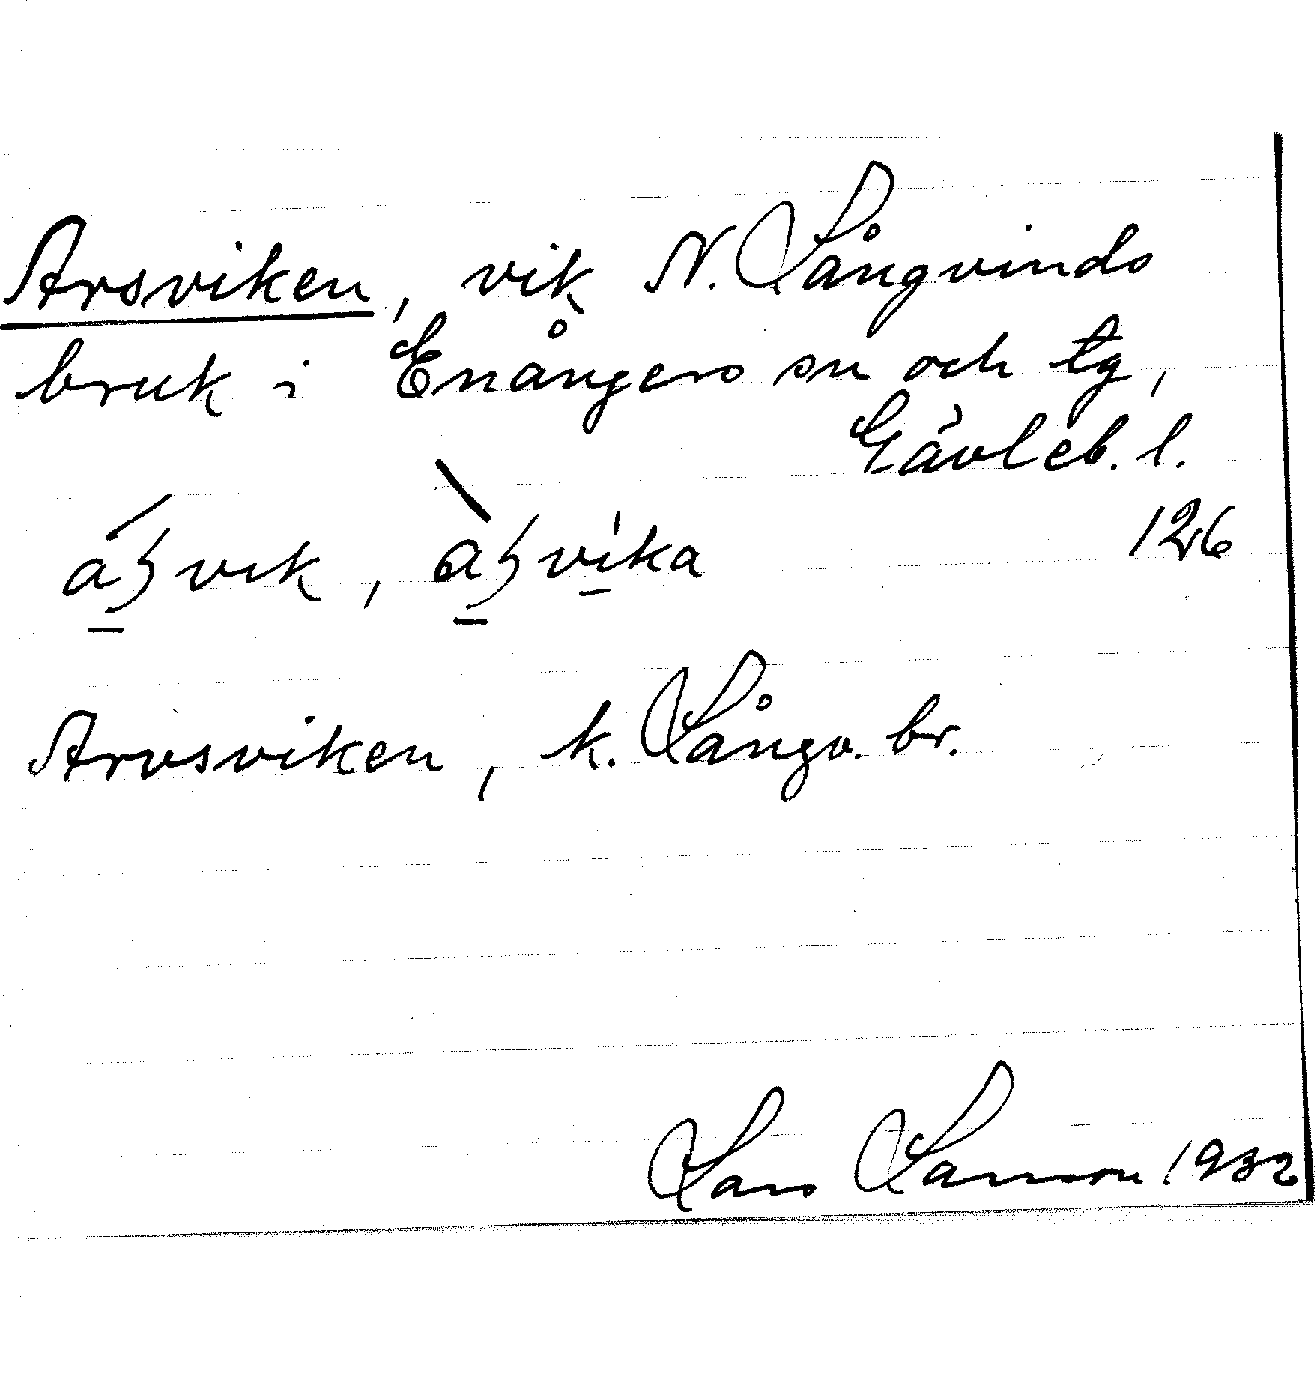 Arsviken, vik N. Långvinds
bruk i Enångers sn och tg,
Gävleb. l.
126
Arvsviken, k. Långv. br.
Lars Larsson 1932